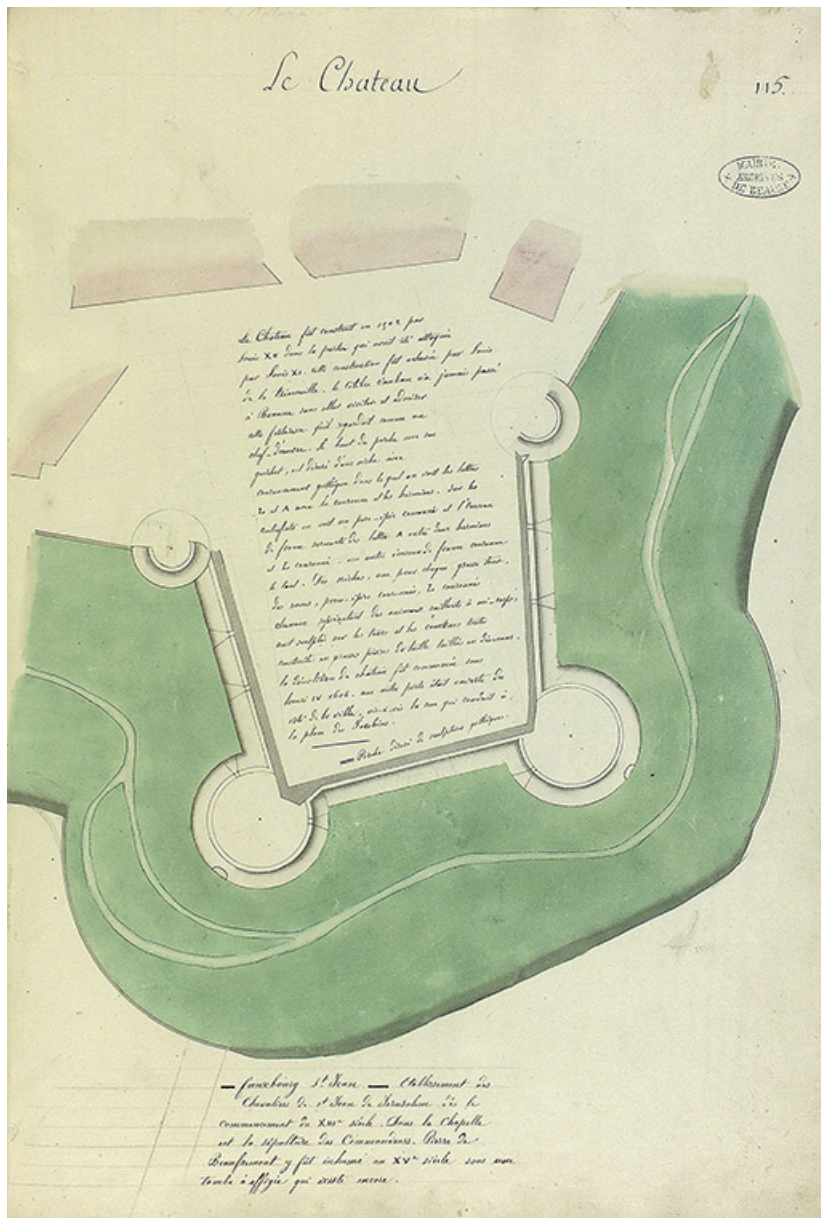 Le Chateau
115.
MAIRIE
ARCHIVES
DE BEAUNE
Le Chateau fût construit en 1502 par
Louis XII dans la partie qui avoit été
par Louis XI. cette construction fût par Louis
de la Trémouille. le célèbre Vauban n'a jamais passé
à Beaune sans aller visiter et admirer
cette forteresse qu'il regardoit comme un
chef-d'œuvre. le haut du porche avec son
guichet, est décoré d'une niche avec
couronnement gothique dans le quel on voit les lettres
et A avec la couronne et les hermines. Sur les
on voit un porc-épic couronné et l'écusson
de france surmonté des lettres A entre deux hermines
et les couronné. un autre écusson de france couronne
le tout. Des niches, une pour chaque grosse tour,
des , porcs-épics couronnés, couronnés
représentant des animaux saillants à mi-corps,
sont sculptés sur les tours et les courtines toutes
construites en grosses pierres de taille taillées en diamans.
la démolition du château fût commencée sous
henri IV 1602. une autre porte étoit ouverte du
côté de la ville, vis-à-vis la rue qui conduit à
la place des Jacobins.
— Porche décoré de sculptures gothiques.
— fauxbourg St Jean — Etablissement des
Chevaliers de St Jean de Jerusalem dès le
commencement du siècle. Dans la Chapelle
est la sépulture des Commandeurs. Pierre de
Beaufremont y fût inhumé au XVe siècle sous une
tombe à effigie qui existe encore.